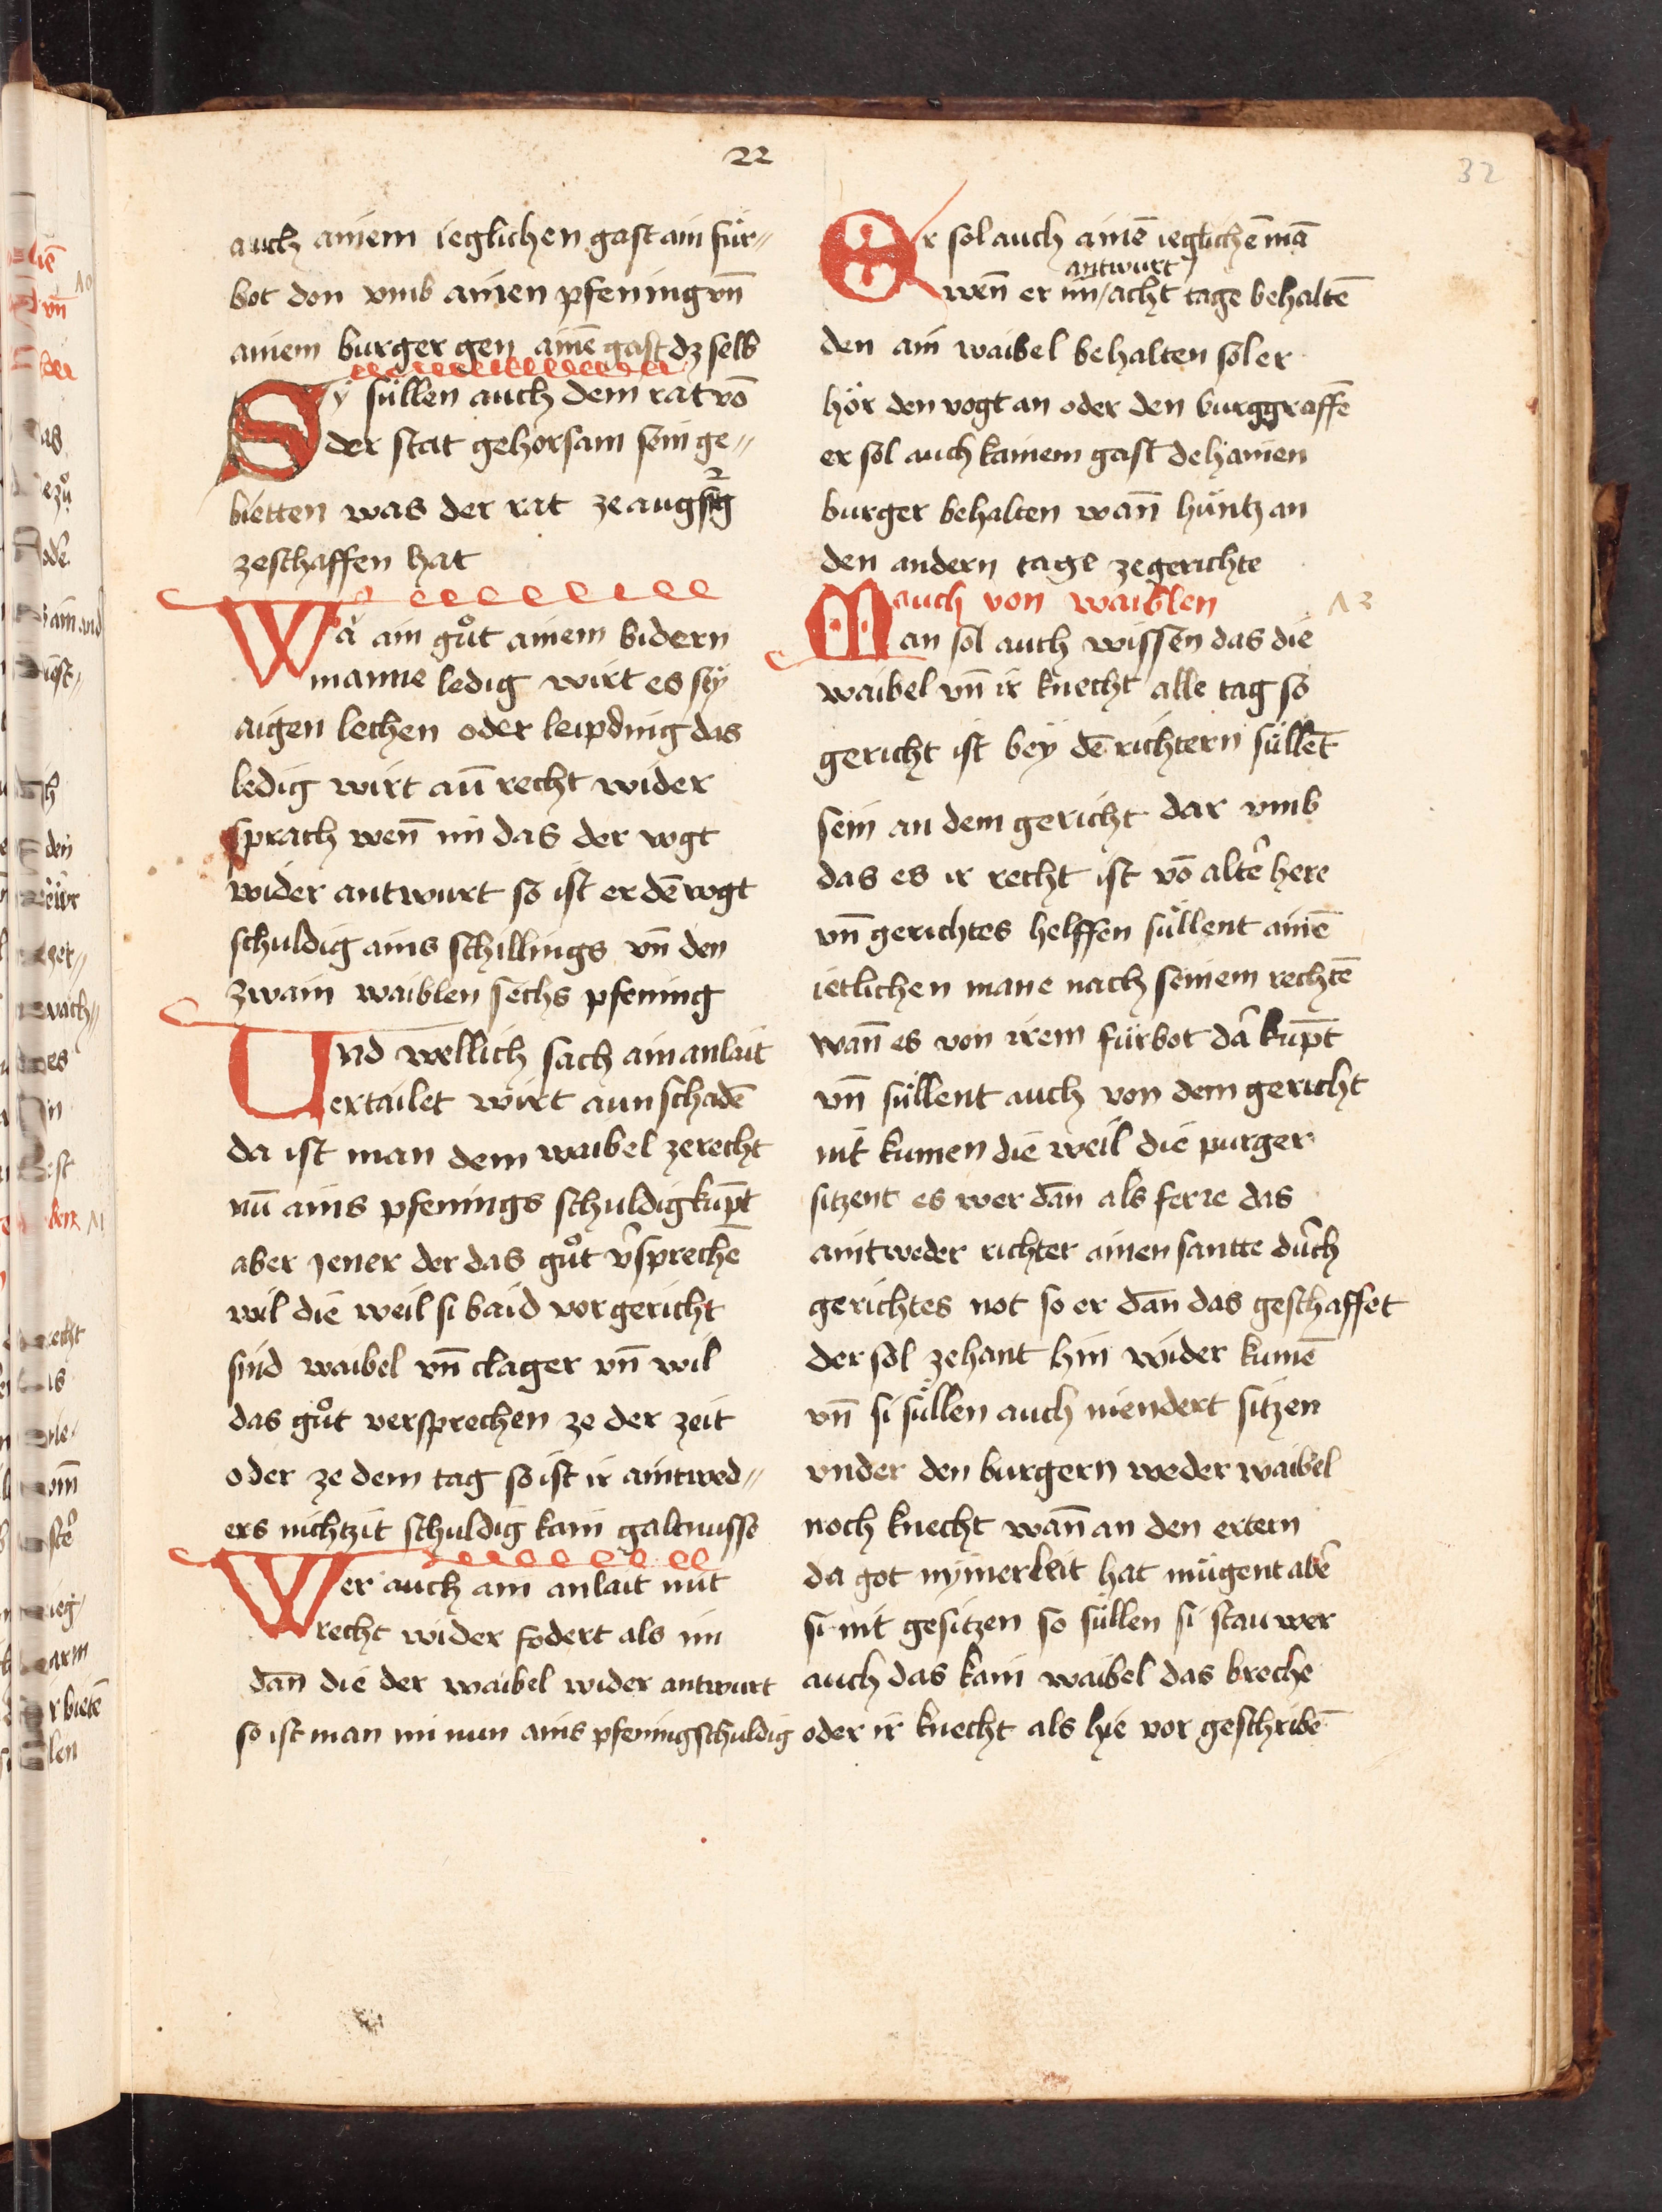 22
32
auch ainem ieglichen gast ain für〃
bot don vmb ainen pfening vn̄
ainem burger gen ainē gast dz selb
Sÿ süllen auch dem rat vō
der stat gehorsam sein ge〃
bietten was der rat ze augspg
zeschaffen hat
Wa ain gůt ainem bidern
manne ledig wirt es sÿ
aigen lechen oder leipding das
ledig wirt an̄ recht wider
sprach wen̄ im das der vogt
wider antwurt so ist er dē vogt
schuldig ains schillings vn̄ den
zwain waiblen sechs pfening
Und wellich sach ain anlait
ertailet wirt aun schadē
da ist man dem waibel zerecht
nū ains pfenings schuldig kūpt
aber jener der das gůt v̄sprechē
wil die weil si baid vor gericht
sind waibel vn̄ clager vn̄ wil
das gůt versprechen ze der zeit
oder ze dem tag so ist ir aintwed〃
ers nichtzit schuldig kain galtnusse
Wer auch ain anlait mit
recht wider fodert als im
dan̄ die der waibel wider antwurt
so ist man im nun ains pfening schuldig
Er sol auch ainē ieglichē mā
antwurt
wen̄ er im acht tage behaltē
den ain waibel behalten sol er
hör den vogt an oder den burggraffē
er sol auch kainem gast dehainen
burger behalten wan̄ hüntz an
den andern tage ze gerichte
auch von waiblen
13
Man sol auch wissen das die
waibel vn̄ ir knecht alle tag so
gericht ist beÿ dē richtern süllēt
sein an dem gericht dar vmb
das es ir recht ist vō alt̄e here
vn̄ gerichtes helffen süllent ainē
ietlichen mane nach seinem rechtē
wan̄ es von irem fürbot dā kūpt
vn̄ süllent auch von dem gericht
nit kumen die weil die purger
sitzent es wer dān als ferre das
aintweder richter ainen santte durch
gerichtes not so er dān das geschaffet
der sol zehant hin wider kumē
vn̄ si süllen auch niendert sitzen
vnder den burgern weder waibel
noch knecht wan̄ an den ertern
da got nÿmer leit hat mügent abē
si nit gesitzen so süllen si stan wer
auch das kain waibel das breche
oder ir knecht als hie vor geschribē